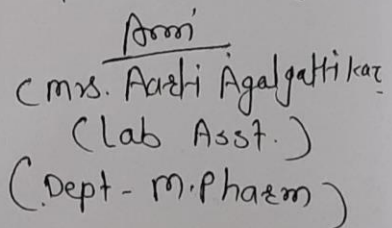 (Mrs. Aarti Agalgattikar
(Lab Asst.)
(Dept - M.Pharm)